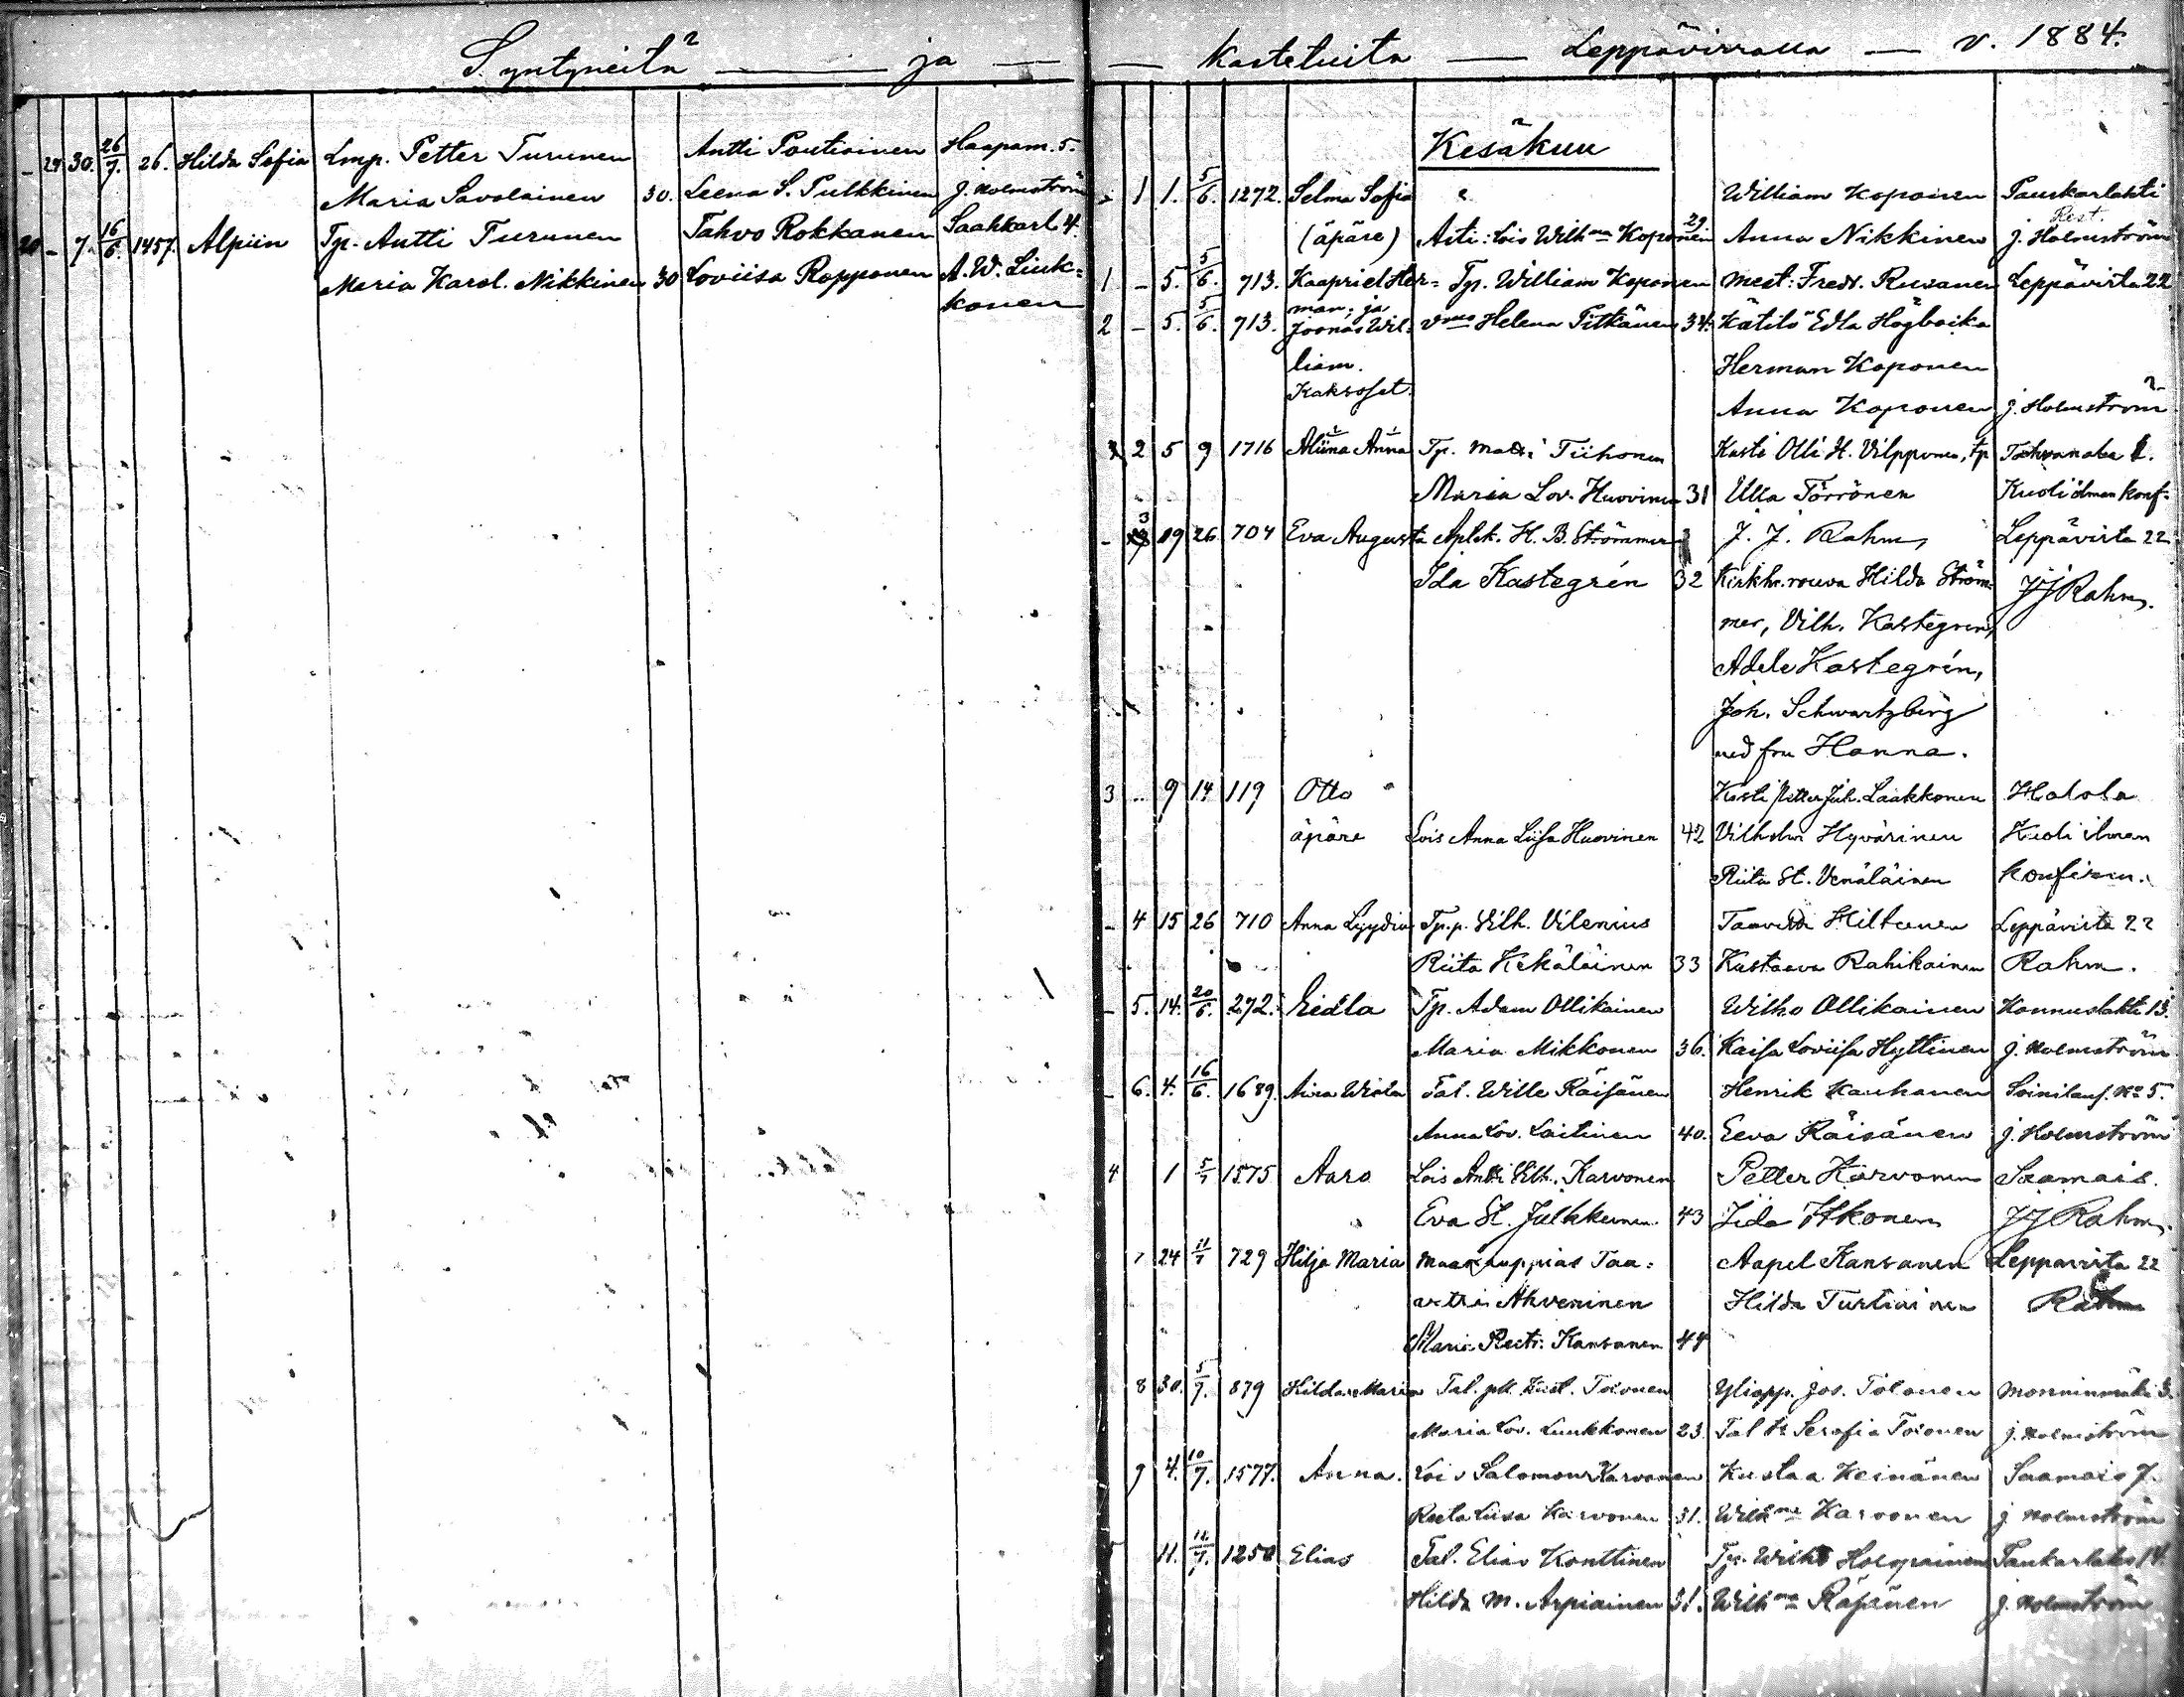 Syntyneitä — ja —
- 29 30. 26/7. 26. Hilda Sofia Lmp. Petter Turunen Antti Poutiainen Haapam. 5.
Maria Savolainen 30. Leena S. Pulkkinen J. Holmström
20 - 7. 16/6. 1457. Alpiin Tp. Antti Turunen Tahvo Rokkanen Saahkarl. 4.
Maria Karol. Nikkinen 30 Loviisa Ropponen A. W. Liuk=
konen
— Kastetuita — Leppävirralla — v. 1884.
Kesäkuu
1 1. 5/6. 1272. Selma Sofia William Koponen Paukarlahti
Rest.
(äpäre) Äiti: Lois Wilhna Koponen 29 Anna Nikkinen J. Holmström
1 - 5. 5/6. 713. Kaapriel Her= Tp. William Koponen Mest: Fredr. Rusanen Leppävirta 22
man, ja
2 - 5. 5/6. 713. Joonas Wil= vmo Helena Pitkänen 34. Kätilö Edla Högbaika
liam. Herman Koponen
Kaksoset. Anna Koponen J. Holmström
2 5 9 1716 Aliina Anna Tp. Matti Tiihonen Kasti Olli H. Vilpponen, tp
Maria Lov. Huovinen 31 Ulla Törrönen Kuoli ilman konf=
- 3 19 26 704 Eva Augusta Aplek. H. B. Strömmer J. J. Rahm, Leppävirta 22
Ida Kastegrén 32 Kirkh. rouva Hilda Ström= JJ Rahm.
mer, Vilh. Kastegren,
Adele Kastegrén,
Joh. Schwartzberg
med fru Hanna.
3 - 9 14 119 Otto Kasti Petter Juh. Laakkonen Halola
äpäre Lois Anna Liisa Huovinen 42 Vilhelm Hyvärinen Kuoli ilman
Riita St. Venäläinen konfirm.
- 4 15 26 710 Anna Lyydia Tp.p. Vilh. Vilenius Taavetti Hiltunen Leppävirta 22
Riita Kekäläinen 33 Kustaava Rahikainen Rahm.
- 5. 14. 20/6. 272. Eedla Tp. Adam Ollikainen Wilho Ollikainen Konnuslahti 13.
Maria Mikkonen 36. Kaisa Loviisa Hyttinen J. Holmström
- 6. 4. 16/6. 1689. Tal. Wille Räisänen Henrik Kauhanen Soinilans. No 5.
Anna Lov. Laitinen 40. Eeva Räisänen J. Holmström
4 1 5/7 1575 Aaro Lois Antti Vilh. Karvonen Petter Karvonen Saamais.
Eva St. Julkkunen 43 Iida Itkonen JJ Rahm.
7 24 11/7 729 Hilja Maria Maakauppias Taa= Aapel Kansanen Leppävirta 22
vetti Ahveninen Hilda Turtiainen Rahm
Maria Reeta Kansanen 44
8 30. 5/7. 879 Hilda Maria Tal. pk. Kust. Toivonen Yliopp. Jos. Tolonen Monninmäki 3.
Maria Lov. Luukkonen 23. Tal. tr Serafia Toivonen J. Holmström
9 4. 10/7. 1577. Anna. Lois Salomon Karvonen Kustaa Heinänen Saamais 7.
Reeta Liisa Karvonen 31. Wilhna Karvonen J. Holmström
5 11. 12/7. 1250 Elias Tal. Elias Konttinen Tp. Wilho Holopainen Paukarlaks 14.
Hilda M. Arpiainen 31. Wilhna Räsänen J. Holmström